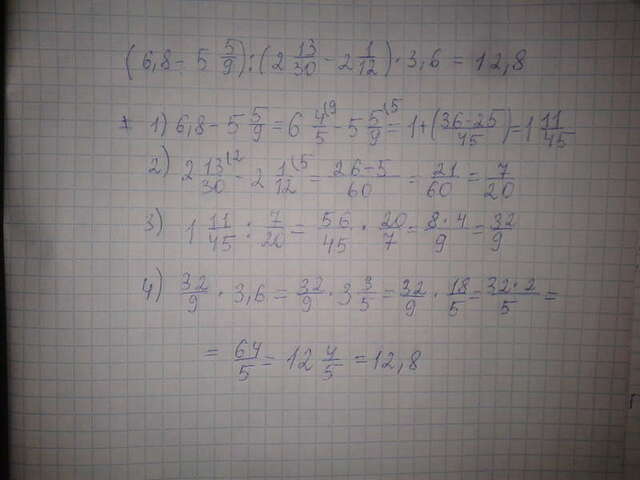 (6,8 - 5 5/9) : (2 13/30 - 2 1/12) · 3,6 = 12,8
1) 6,8 - 5 5/9 = 6 4/5 (9 - 5 5/9 (5 = 1 + (36-25/45) = 1 11/45
2) 2 13/30 (2 - 2 1/12 (5 = 26-5/60 = 21/60 = 7/20
3) 1 11/45 : 7/20 = 56/45 · 20/7 = 8·4/9 = 32/9
4) 32/9 · 3,6 = 32/9 · 3 3/5 = 32/9 · 18/5 = 32·2/5 =
= 64/5 = 12 4/5 = 12,8